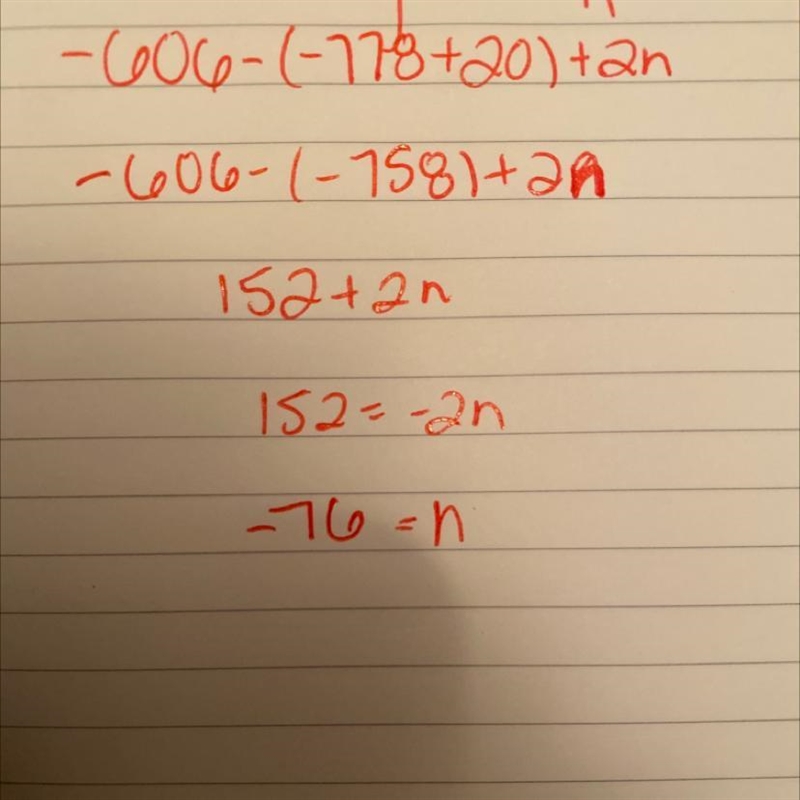 -606-(-778+20)+2n
-606-(-758)+2n
152+2n
152=-2n
-76=n